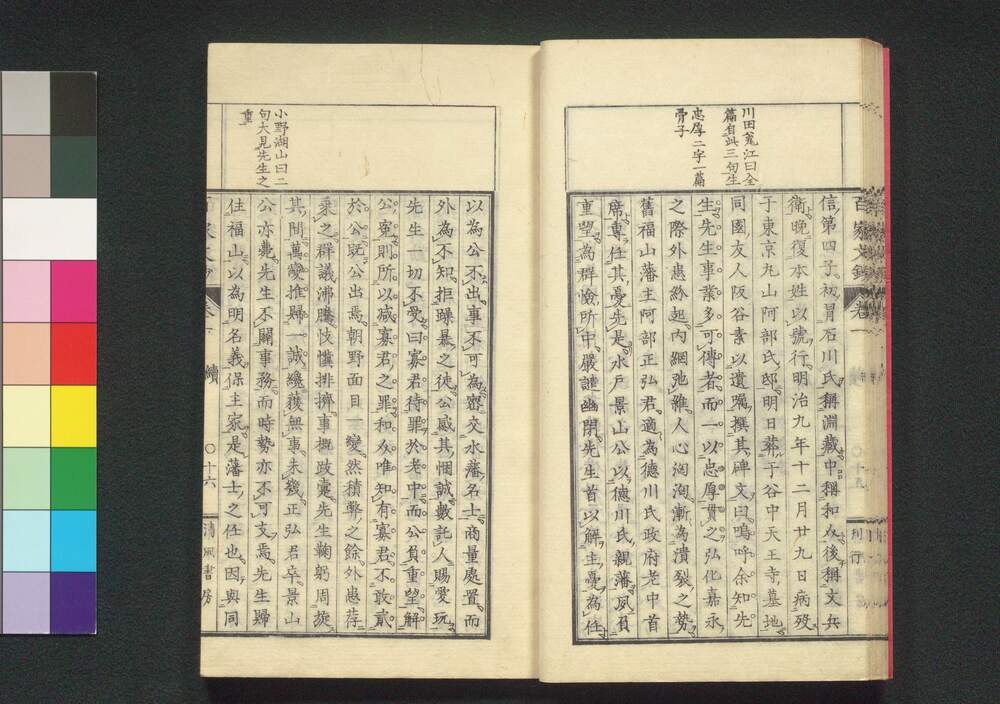 川田甕江曰全
篇自此三句生
忠厚二字一篇
骨子
信第四子初冒石川氏稱淵藏中稱和介後稱文兵
衛晚復本姓以號行明治九年十二月廿九日病歿
于東京丸山阿部氏邸明日葬于谷中天王寺墓地
同國友人阪谷素以遺囑撰其碑文曰嗚呼余知先
生先生事業多可傳者而一以忠厚貫之弘化嘉永
之際外患紛起內綱弛維人心洶洶漸為潰裂之勢
舊福山藩主阿部正弘君適為德川氏政府老中首
席專任其憂先是水戶景山公以德川氏親藩夙負
重望為群憸所中嚴譴幽閉先生首以解主憂為任
小野湖山曰二
句大見先生之
重
以為公不出事不可為密交水藩名士商量處置而
外為不知拒躁暴之徒公感其悃誠數託人賜愛玩
先生一切不受曰寡君待罪於老中而公負重望解
公冤則所以減寡君之罪和介唯知有寡君不敢貳
於公既公出焉朝野面目一變然積弊之餘外患荐
乘之群議沸騰忮懻排擠事概跂疐先生鞠躬周旋
其間萬變推歸一誠纔護無事未幾正弘君卒景山
公亦薨先生不關事務而時勢亦不可支焉先生歸
住福山以為明名義保主家是藩士之任也因與同
百家文鈔
卷一
刊行
續
〇十六
清風書房